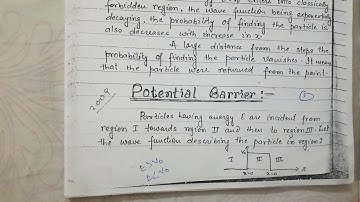 forbidden region, the wave function being exponentially
decaying the probability of finding the particle is
also decreases with increase in x.
A large distance from the steps the
probability of finding the particle vanishes. It means
that the particle were returned from the point.
2009
Potential Barrier:-
Particles having energy E are incident from
region I towards region II and then to region III. Let
the wave function describing the particle in region I
E>V₀
E<V₀
V₀
I II III
x=0 x=a x